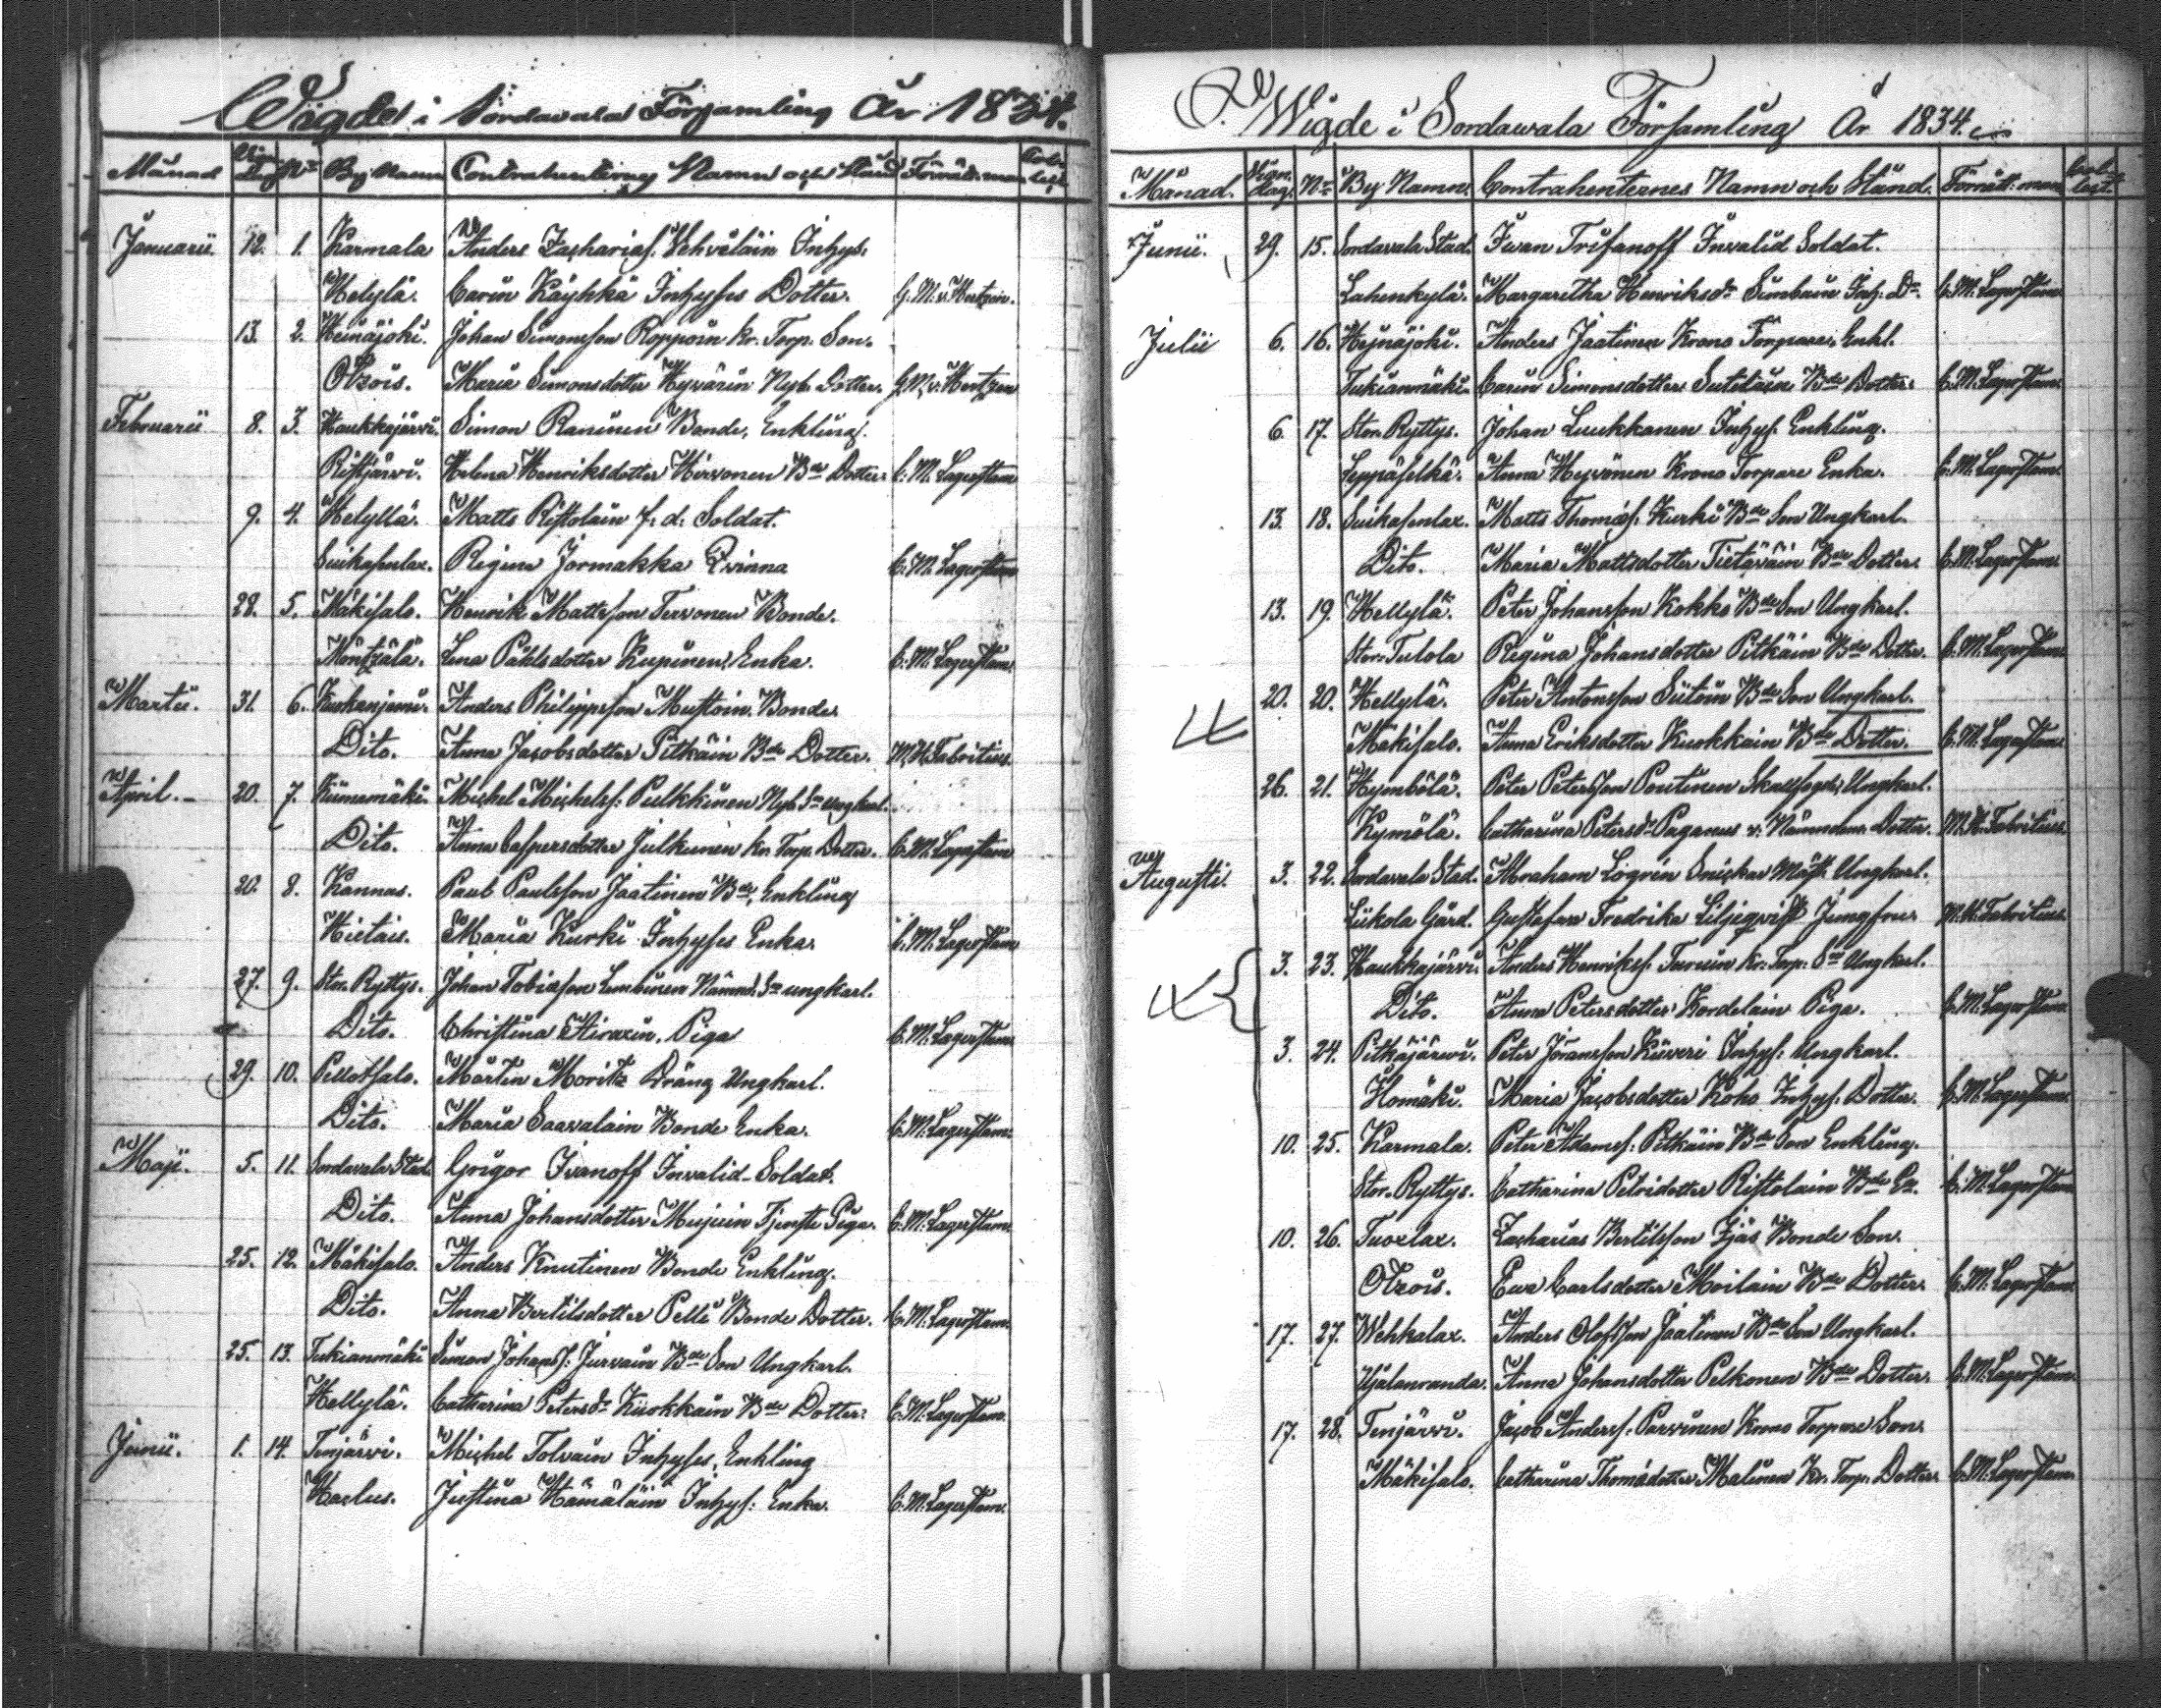 Wigde i Sordavala Församling År 1834.
Månad Vign. Dag No By Namn Contrahenternes Namn och Stånd Förrätt. man Col- lect
Januarii 12. 1. Karmala Anders Zachariasf. Vehviläin Inhys.
Helylä. Carin Käyhkä Inhyses Dotter. G. M. v. Hertzen.
13. 2. Heinäjoki. Johan Simonsson Ropponen kr. Torp. Son.
Otzois. Maria Simonsdotter Hyvärin Nyb. Dotter. G. M. v. Hertzen
Februarii 8. 3. Haukkajärvi. Simon Raninen Bonde, Enkling.
Ristijärvi. Helena Henriksdotter Hirvonen Bde Dotter C. M. Lagerstam
9. 4. Helyllä. Matts Ristolain f. d. Soldat.
Suikasenlax. Regina Jormakka Qvinna C. M. Lagerstam
28. 5. Mäkisalo. Henrik Mattsson Tervonen Bonde.
Möntzälä. Lena Påhlsdotter Kupinen, Enka. C. M. Lagerstam.
Martii. 31. 6. Anders Philippsson Mustoin Bonde
Dito. Anna Jacobsdotter Pitkäin Bde Dotter. M. H. Fabritius.
April. 20. 7. Michel Michelsf. Pulkkinen Nyb. Sn Ungkarl.
Dito. Anna Caspersdotter Julkunen kr. Torp. Dotter. C. M. Lagerstam
20. 8. Kannas. Paul Paulsson Jaatinen Bde, Enkling
Hietais. Maria Kurki Inhyses Enka. C. M. Lagerstam
27. 9. Stor. Ryttys. Johan Tobiasson Nämnd. Sn ungkarl.
Dito. Christina Airaxin, Piga C. M. Lagerstam.
29. 10. Pellotsalo. Mårten Moritz Dräng Ungkarl.
Dito. Maria Saavalain Bonde Enka. C. M. Lagerstam.
Maji. 5. 11. Sordavala Stad. Grigor Ivanoff Invalid-Soldat.
Dito. Anna Johansdotter Mujuin Tjenste Piga. C. M. Lagerstam.
25. 12. Mäkisalo. Anders Knutinen Bonde Enkling.
Dito. Anna Bertilsdotter Pelli Bonde Dotter. C. M. Lagerstam.
25. 13. Tukianmäki Simon Johansf. Jurvain Bde Son Ungkarl.
Hellylä. Catharina Petersdr Kuokkain Bde Dotter. C. M. Lagerstam.
Junii. 1. 14. Tenjärvi. Michel Tolvain Inhyses, Enkling
Haslus. Justina Hämäläin Inhys: Enka. C. M. Lagerstam.
Wigde i Sordawala Församling År 1834.
Månad. Vign. dag. No By Namn. Contrahenternes Namn och Stånd. Förrätt: man Col- lect.
Junii. 29. 15. Sordavala Stad. Iwan Trifanoff Invalid Soldat.
Lahenkylä. Margaretha Henriksdr Simbain Inh. Dr. C. M. Lagerstam
Julii 6. 16. Heynäjoki. Anders Jaatinen Krono Torpare, Enkl.
Tukianmäki. Carin Simonsdotter Bde Dotter. C. M. Lagerstam.
6. 17. Stor. Ryttys. Johan Luukkanen Inhys. Enkling.
Leppäselkä. Anna Heyvönen Krono Torpare Enka. C. M. Lagerstam.
13. 18. Suikasenlax. Matts Thomasf. Kurki Bde Son Ungkarl.
Dito. Maria Mattsdotter Tietäväin Bde Dotter. C. M. Lagerstam.
13. 19. Hellylä. Peter Johansson Kokko Bde Son Ungkarl.
Stor. Tulola Regina Johansdotter Pitkäin Bde Dotter. C. M. Lagerstam
20. 20. Hellylä. Peter Antonsson Siitoin Bde Son Ungkarl.
Mäkisalo. Anna Eriksdotter Kuokkain Bde Dotter. C. M. Lagerstam
26. 21. Hymbölä. Peter Petersson Poutinen Skallfogde, Ungkarl.
Kymölä. Catharina Petersdr Paganus v. Nämndem. Dotter. M. H. Fabritius
Augusti. 3. 22. Sordavala Stad. Abraham Logrén Snickar Mäst. Ungkarl.
Liikola Gård. Gustafava Fredrika Liljeqvist Jungfru M. H. Fabritius.
3. 23. Haukkajärvi. Anders Henriksf. Turuin kr. Torp. Sn Ungkarl.
Dito. Anna Petersdotter Kordelain Piga. C. M. Lagerstam
3. 24. Pitkäjärwi. Peter Göransson Kiiveri Inhys: Ungkarl.
Homäki. Maria Jacobsdotter Koho Inhys. Dotter. C. M. Lagerstam
10. 25. Karmala. Peter Adamsf. Pitkäin Bde Son Enkling.
Stor. Ryttys. Catharina Petridotter Ristolain Bde Ea. C. M. Lagerstam
10. 26. Tuoxlax. Zacharias Bertilsson Ijäs Bonde Son.
Otzois. Ewa Carlsdotter Moilain Bde Dotter. C. M. Lagerstam
17. 27. Wehkalax. Anders Olofsson Jaatinen Bde Son Ungkarl.
Hjalanranda. Anna Johansdotter Pelkonen Bde Dotter. C. M. Lagerstam
17. 28. Tenjärvi. Jacob Andersf. Parvinen Krono Torpare Son.
Mäkisalo. Catharina Thomædotter Malinen Kr. Torp. Dotter. C. M. Lagerstam